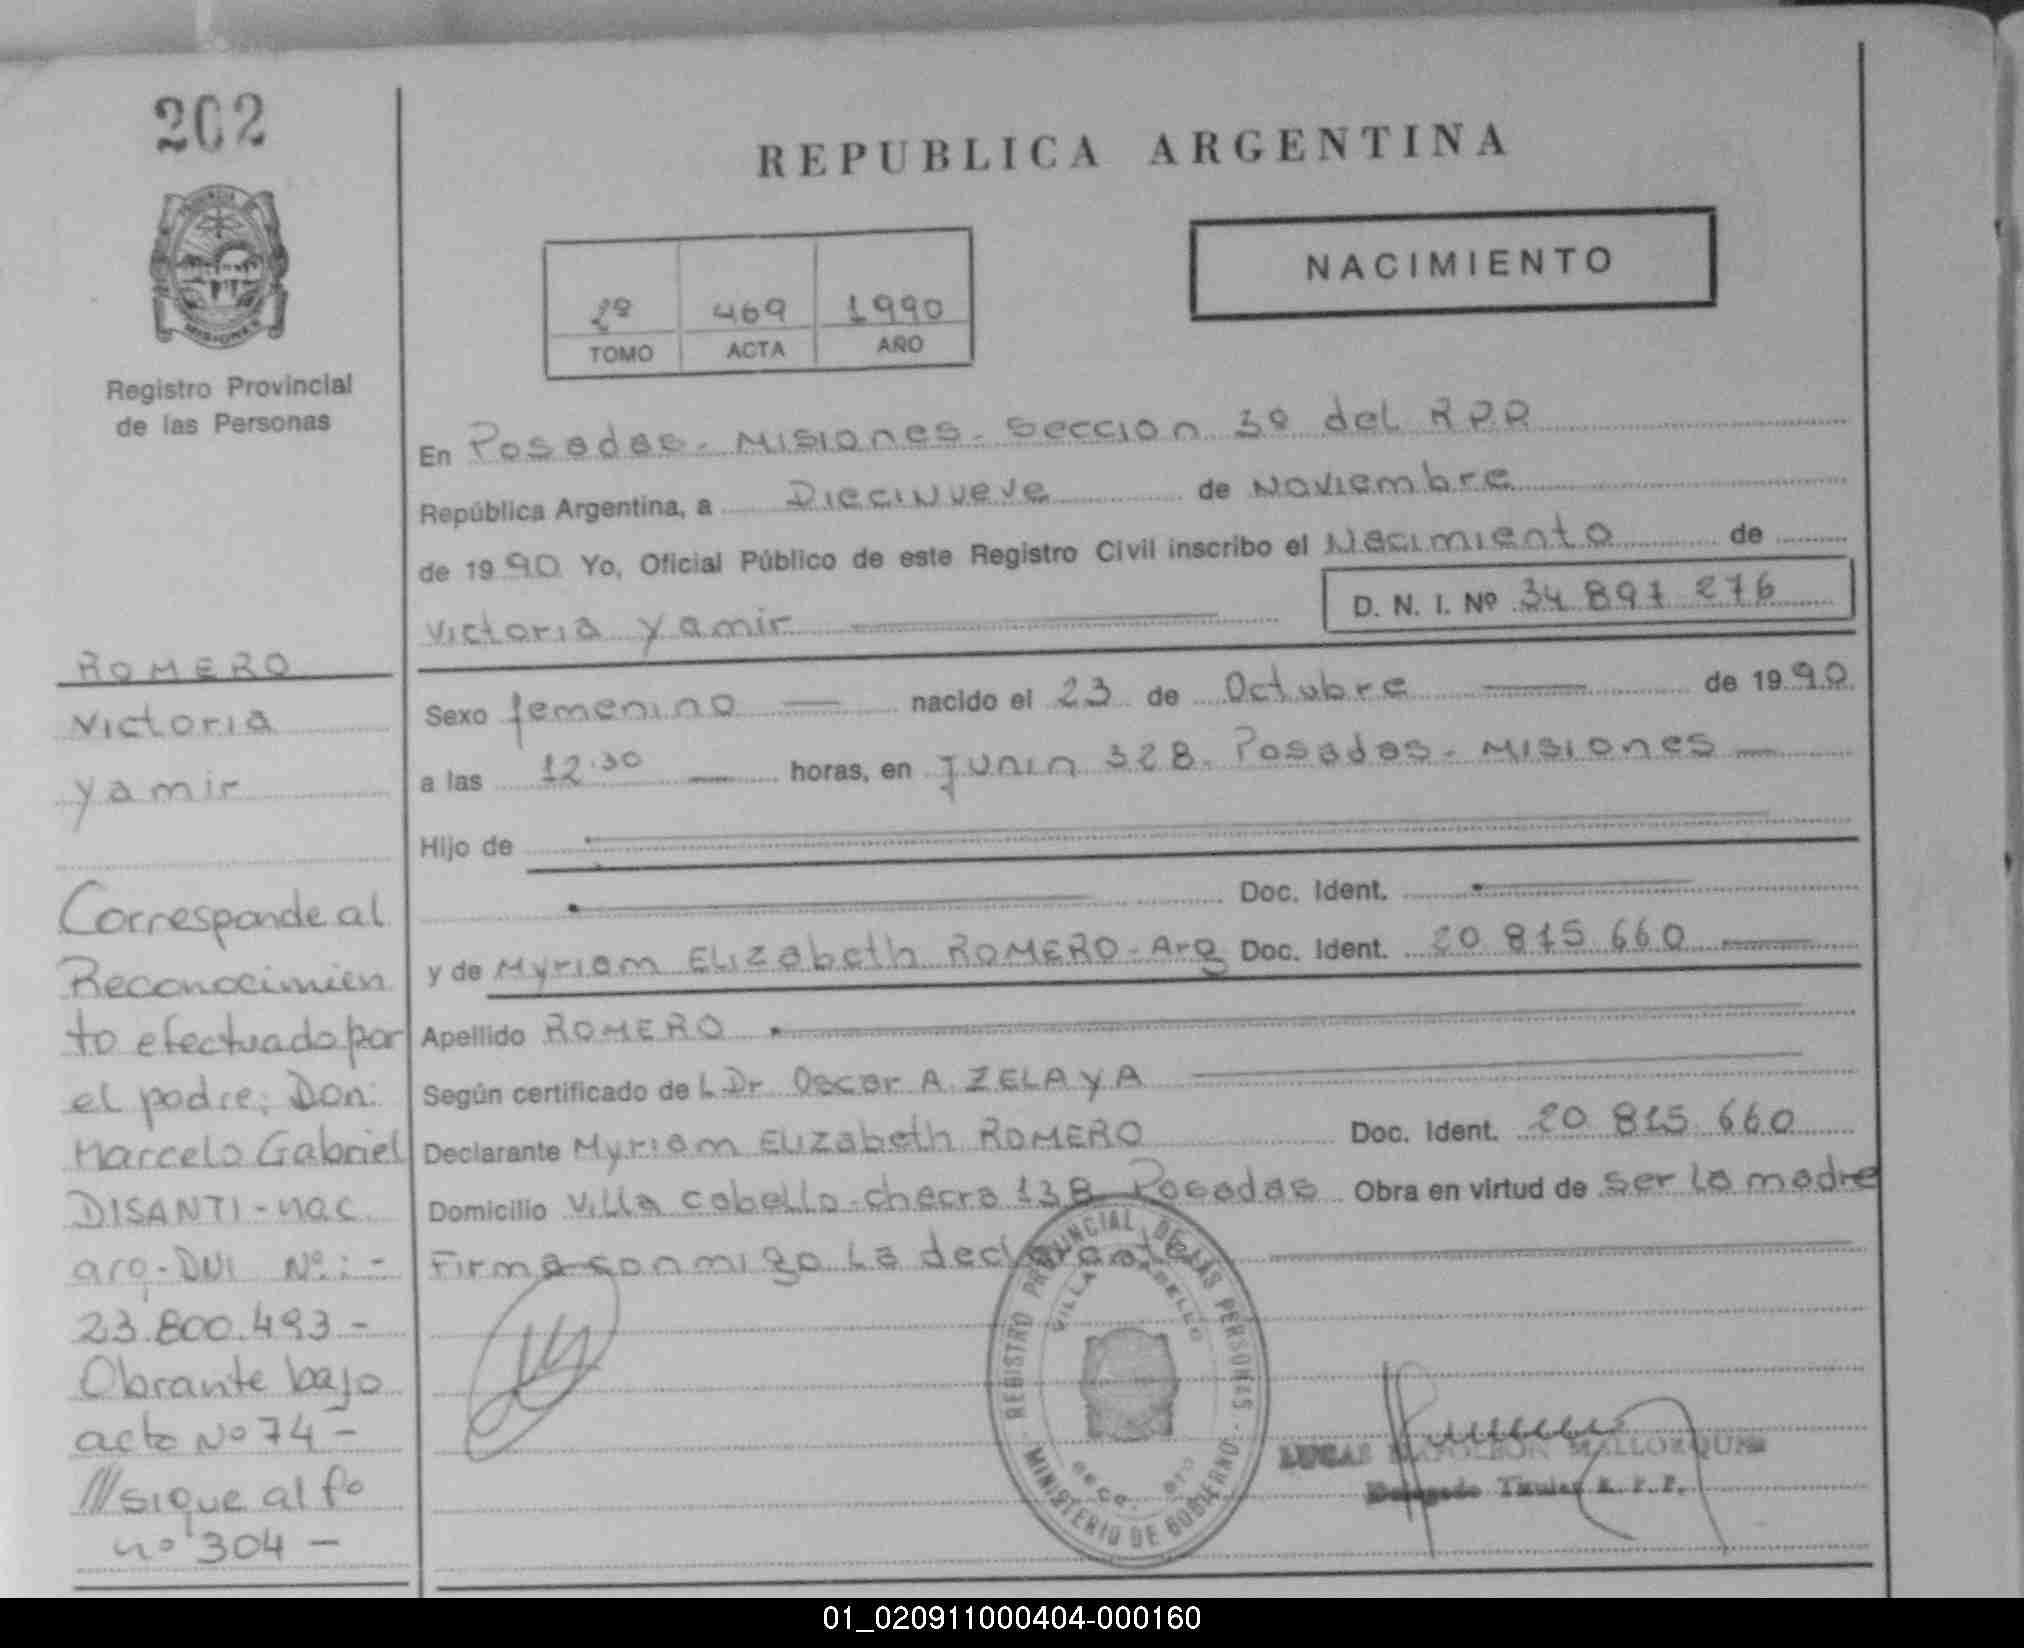 202
REPUBLICA ARGENTINA
NACIMIENTO
2º 469 1990
TOMO ACTA AÑO
Registro Provincial
de las Personas
En Posadas - Misiones - Sección 3º del R.P.P
República Argentina, a Diecinueve de Noviembre
de 1990 Yo, Oficial Público de este Registro Civil inscribo el Nacimiento de
Victoria Yamir
D. N. I. Nº 34 897 276
Sexo femenino nacido el 23 de Octubre de 1990
a las 12.30 horas, en Junín 328. Posadas - Misiones
Hijo de
Doc. Ident.
y de Myriam ELIZabeth ROMERO - Arg Doc. Ident. 20 815 660
Apellido ROMERO
Según certificado de L Dr. Oscar A. ZELAYA
Declarante Myriam ELIZabeth ROMERO Doc. Ident. 20 815 660
Domicilio Villa Cabello - chacra 138 Posadas Obra en virtud de ser la madre
Firma conmigo la declarante
ROMERO
Victoria
Yamir
Corresponde al
Reconocimien
to efectuado por
el padre; Don:
Marcelo Gabriel
DISANTI - nac.
arg. - DNI Nº: -
23.800.493 -
Obrante bajo
acta Nº 74 -
///sigue al fº
nº 304 -
REGISTRO PROVINCIAL DE LAS PERSONAS - MINISTERIO DE GOBIERNO -
VILLA CABELLO
LUCAS NAPOLEON MALLORQUIN
Delegado Titular R. P. P.
01_020911000404-000160